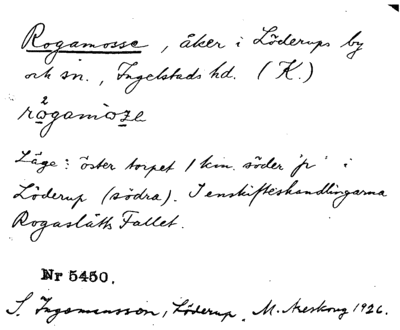 Rogamosse, åker i Löderups by
och sn., Ingelstads hd. (K.)
Läge: öster torpet 1 km. söder "p" i
Löderup (södra). I enskifteshandlingarna
Rogaslätts Fallet.
Nr 5450.
S. Ingemansson, Löderup, M. Areskoug 1926.